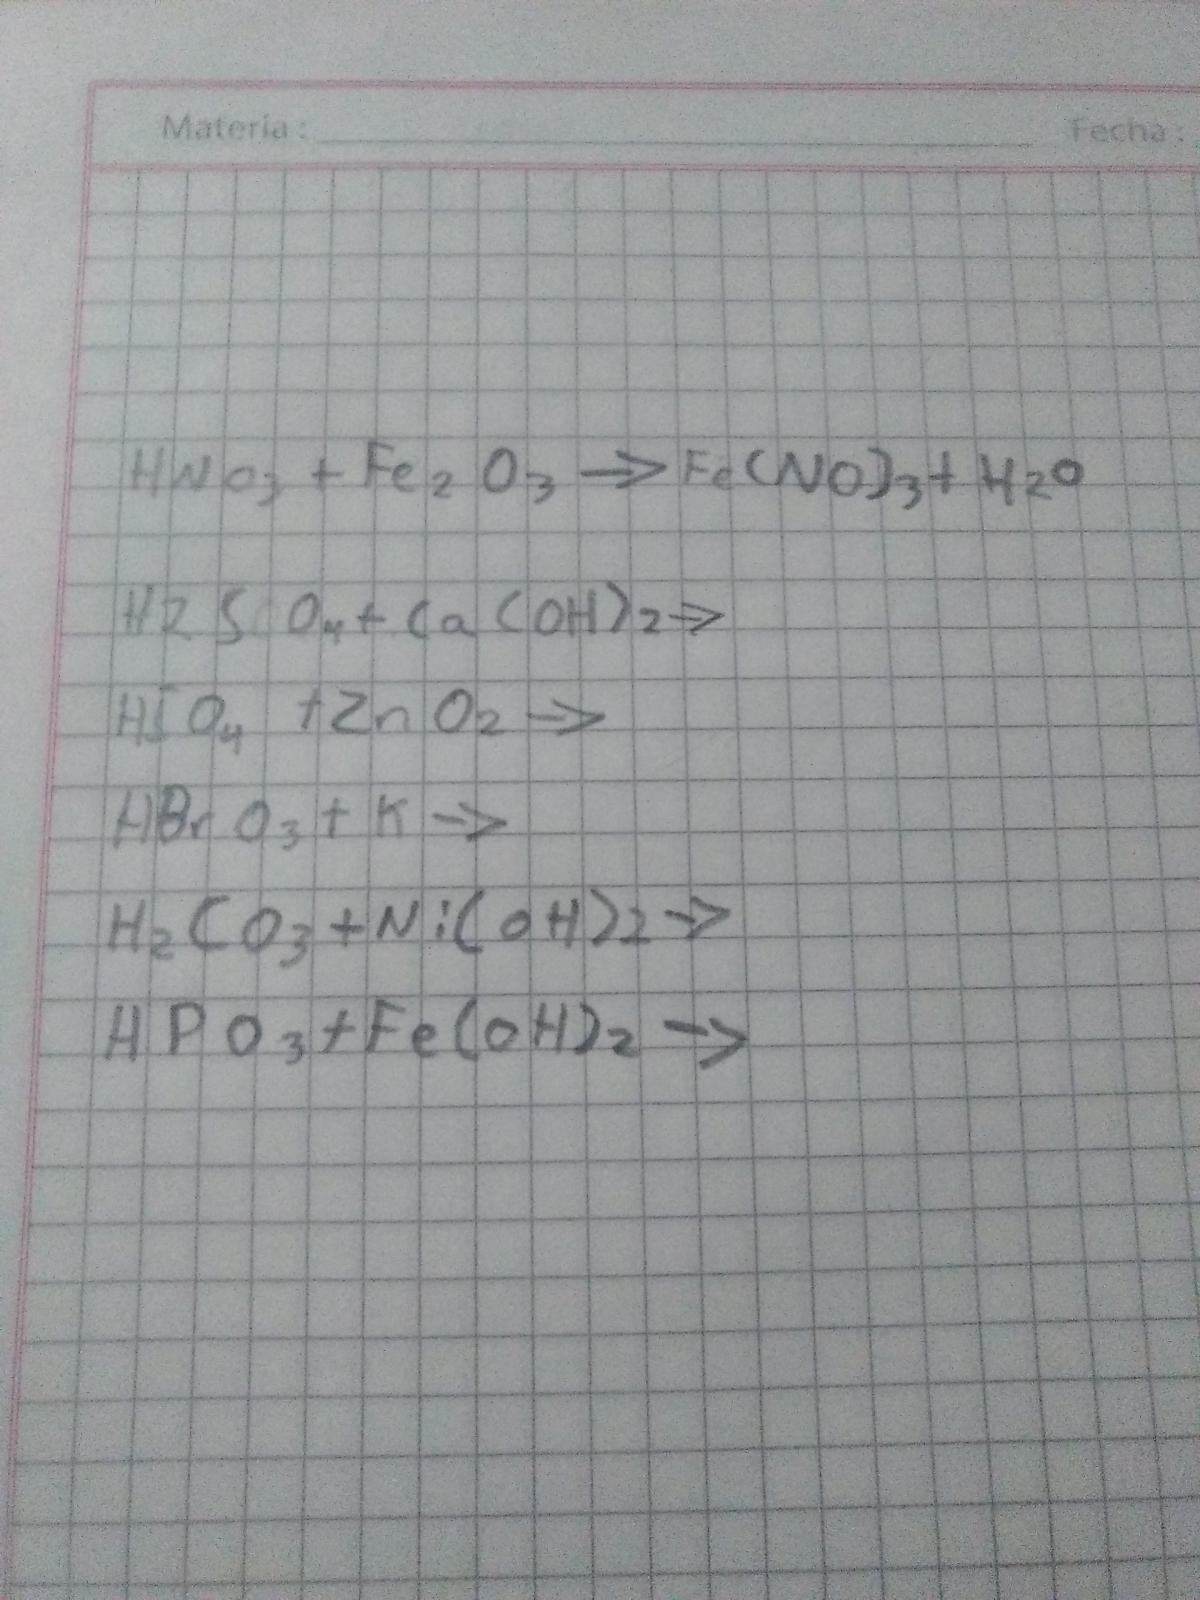 Materia: Fecha:
HNO₃ + Fe₂O₃ → Fe(NO)₃ + H₂O
H2SO₄ + Ca(OH)₂ →
HIO₄ + ZnO₂ →
HBrO₃ + K →
H₂CO₃ + Ni(OH)₂ →
HPO₃ + Fe(OH)₂ →